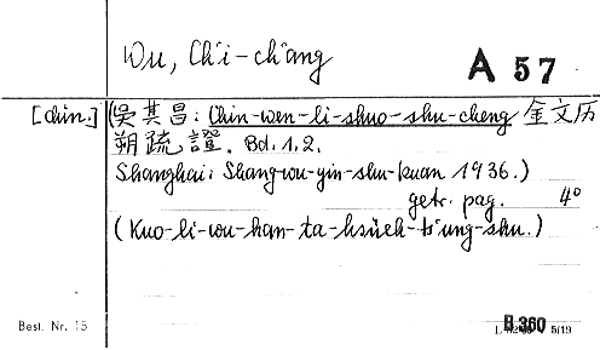 Wu, Ch'i-ch'ang
A 57
[chin.] (吳其昌: Chin-wen-li-shuo-shu-cheng 金文历
朔疏證. Bd. 1.2.
Shanghai: Shang-wu-yin-shu-kuan 1936.)
getr. pag. 4°
(Kuo-li-wu-han-ta-hsüeh-ts'ung-shu.)
Best. Nr. 15
B 360
5/19